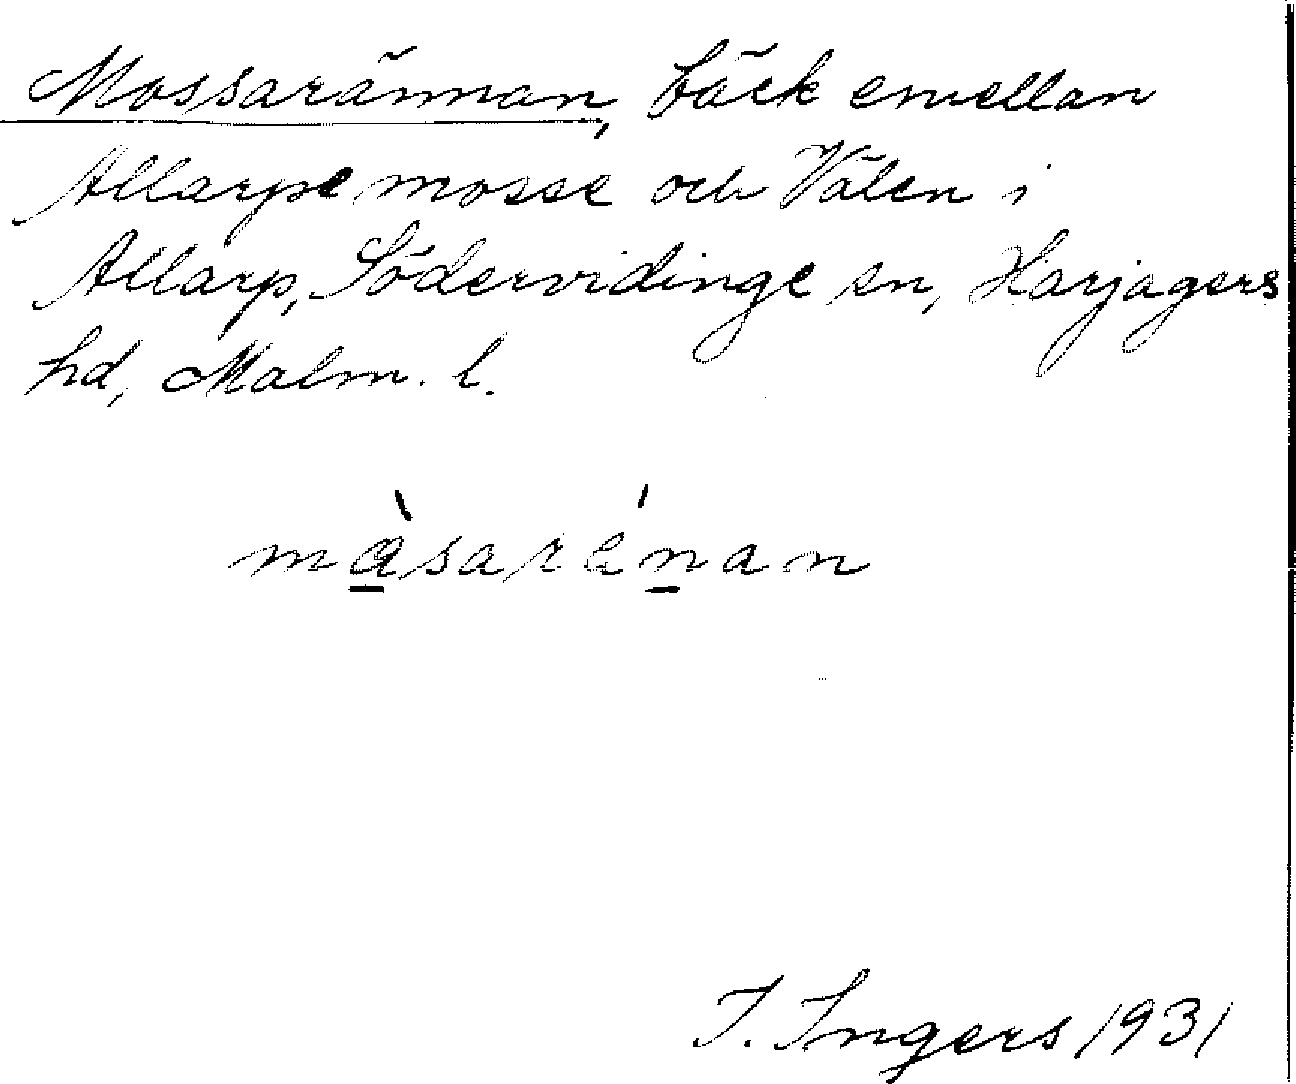 Mossarännan, bäck emellan
Allarpe mosse och Välen i
Allarp, Södervidinge sn, Harjagers
hd, Malm. l.
mɑ̠̀sarénn̠an
I. Ingers 1931